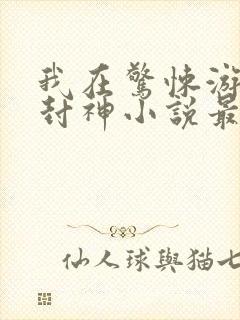 我在驚悚游
封神小說最
仙人球與猫七